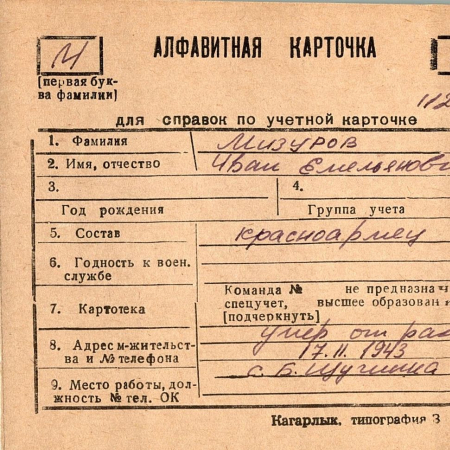 М
АЛФАВИТНАЯ КАРТОЧКА
(первая бук-
ва фамилии)
112
для справок по учетной карточке
1. Фамилия Мизуров
2. Имя, отчество Иван Емельянови
3.
4.
Год рождения
Группа учета
5. Состав красноармец
6. Годность к воен.
службе
Команда № не предназнач
спецучет, высшее образован
[подчеркнуть]
7. Картотека
умер от ран
8. Адрес м-жительст-
ва и № телефона
17.11.1943
9. Место работы, дол-
жность № тел. ОК
Кагарлык, типография З